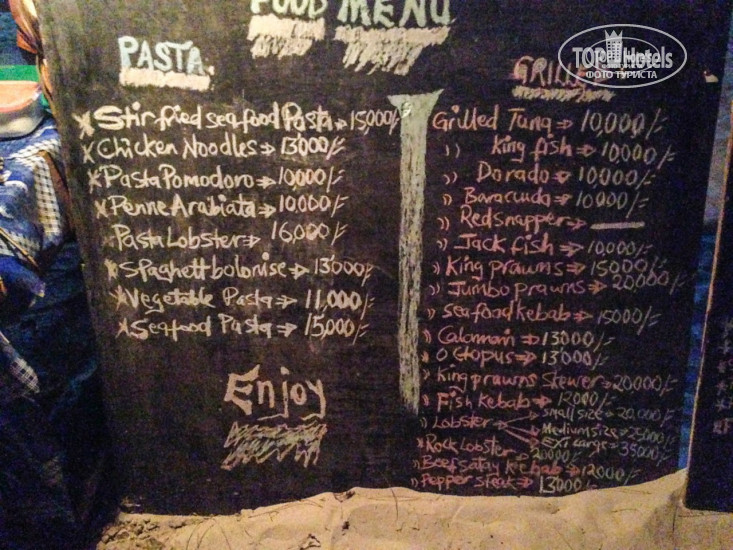 FOOD MENU
PASTA
Stirfried seafood Pasta⇒15,000/=
Chicken Noodles⇒13000/=
Pasta Pomodoro⇒10000/=
Penne Arabiata⇒10,000/=
Pasta Lobster⇒ 16,000/=
Spaghett bolonise⇒13000/=
Vegetable Pasta⇒ 11,000/=
Seafood Pasta⇒ 15,000/=
Enjoy
GRILL
Grilled Tuna⇒ 10,000/=
〃 King fish⇒ 10000/=
〃 Dorado⇒ 10,000/=
〃 Baracuda⇒ 10,000/=
〃 Redsnapper⇒
〃 Jack fish⇒ 10,000/=
〃 King prawns⇒ 15000/=
〃 Jumbo prawns⇒ 20000/=
〃 seafood kebab⇒ 15000/=
〃 Calamari⇒13000/=
〃 Octopus⇒ 13'000/=
〃 King prawns skewer⇒20000/=
〃 Fish kebab⇒ 12000/=
〃 Lobster⇒ small size⇒ 20,000/=
Medium size⇒25000/=
Ext Large⇒ 35000/=
Rock Lobster⇒ 20000/=
〃 Beef satay kebab⇒12000/=
〃 Pepper steak⇒ 13000/=
TOP Hotels
ФОТО ТУРИСТА